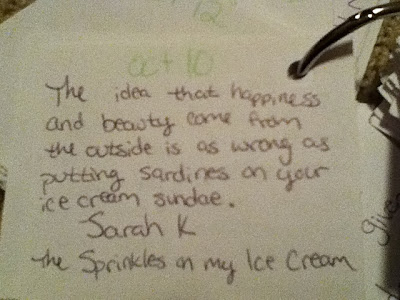 12"
oct 10
The idea that happiness
and beauty come from
the outside is as wrong as
putting sardines on your
ice cream sundae.
Sarah K
The Sprinkles on my Ice Cream